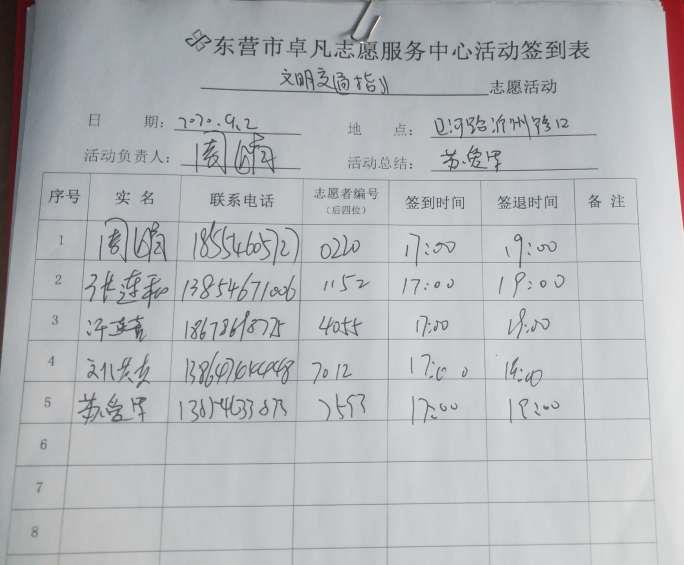 东营市卓凡志愿服务中心活动签到表
文明交通指 志愿活动
日 期: 2020.9.2 地 点: 沂州路口
活动负责人: 周 活动总结: 苏爱军
序号 实 名 联系电话 志愿者编号 签到时间 签退时间 备 注
(后四位)
1 周 18554605727 0220 17:00 19:00
2 张连和 13854671006 1152 17:00 19:00
3 4055 17:00 19:00
4 7012 17:00 19:00
5 苏爱军 17:00 19:00
6
7
8